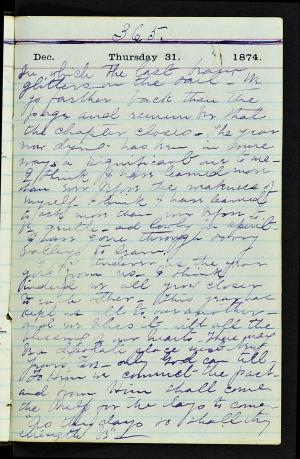 365.
Dec. Thursday 31. 1874.
In which the last
glitters on the We
go farther back than the
page and remember that
the chapter closes - The year
now dying has been in some
ways a significant one to me -
I think I have learned more
than ever before the weakness of
myself. I think I have learned
to ask more than ever before to
be gentle - and lowly in spirit
I have come through
valleys to learn
the year
from us. I think
we all grow closer
to each other - This year has
kept us all to one another -
and we bless it with all the
in our hearts. There may
be a desolate place
only God can tell
To Him we commit the past
and from Him shall come
the help for the days to come
"As thy days so shall thy
strength be"